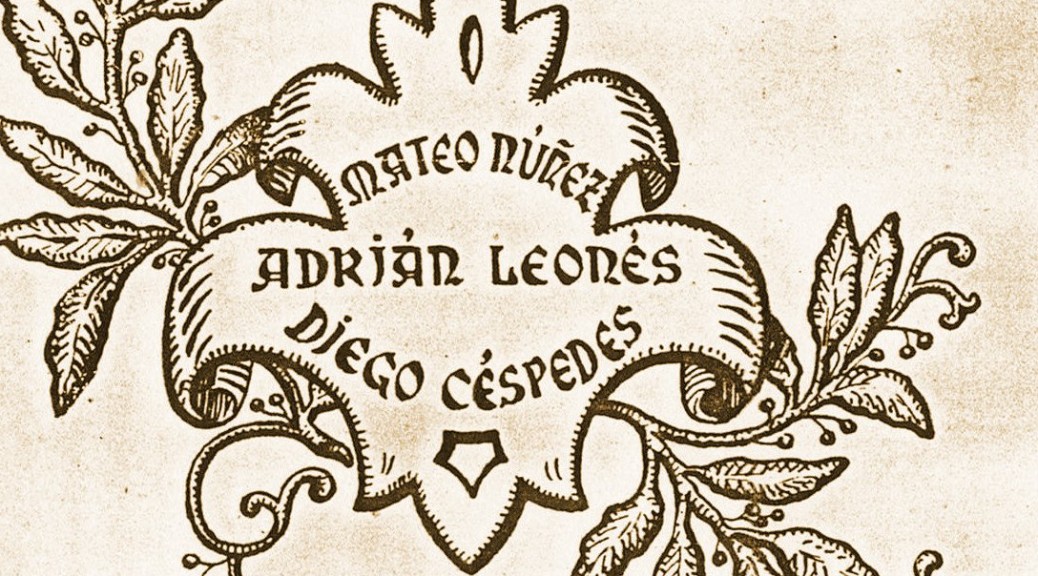 MATEO NÚÑEZ
ADRIÁN LEONÉS
DIEGO CÉSPEDES